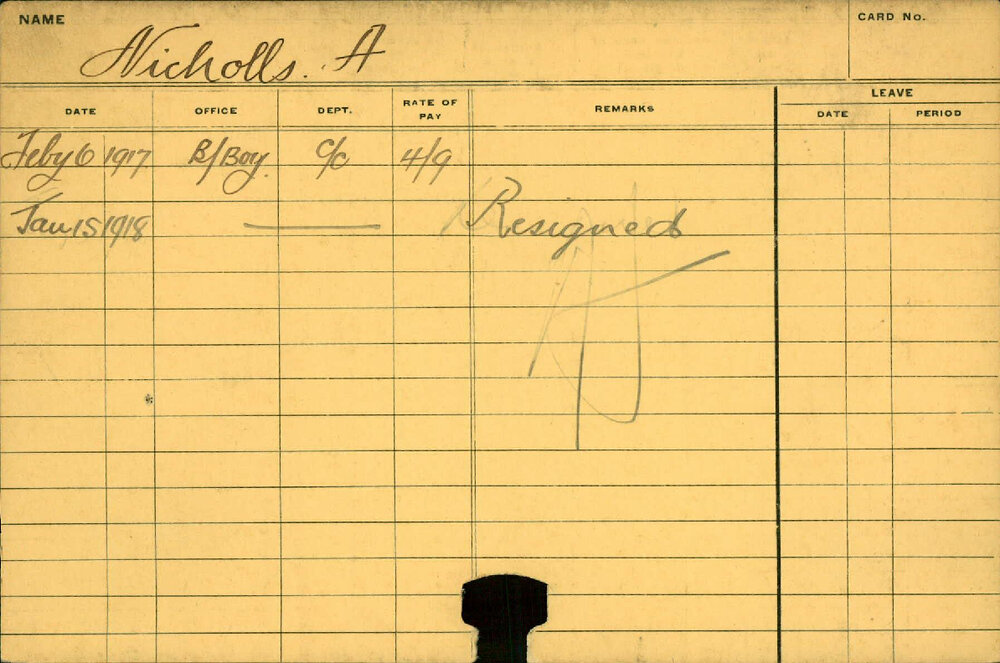 NAME
Nicholls. A
CARD No.
DATE OFFICE DEPT. RATE OF PAY REMARKS LEAVE
DATE PERIOD
Feby 6 1917 B/Boy. C/C 4/9
Jan 15 1918 Resigned